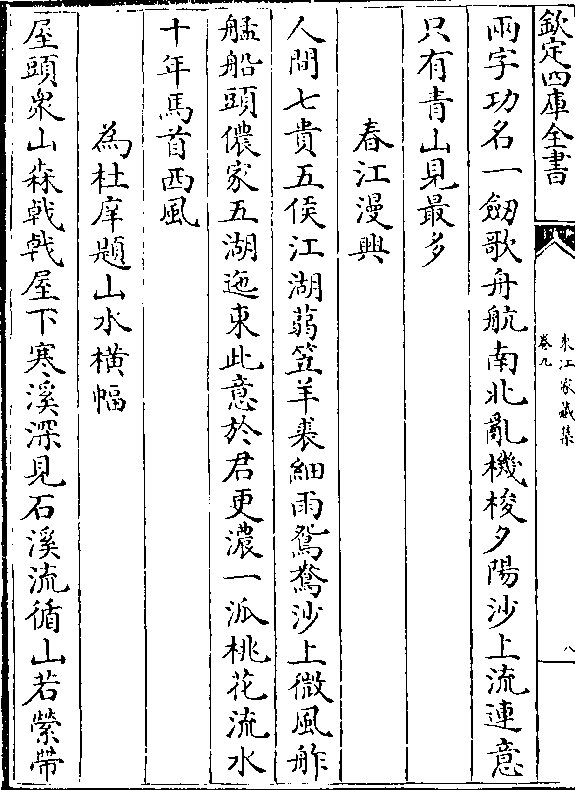 欽定四庫全書
東江家藏集
卷九
八
兩字功名一劒歌舟航南北亂機梭夕陽沙上流連意
只有青山見最多
春江漫興
人間七貴五侯江湖蒻笠羊裘細雨鴛鴦沙上微風舴
艋船頭儂家五湖迤東此意於君更濃一派桃花流水
十年馬首西風
為杜庠題山水橫幅
屋頭衆山森戟戟屋下寒溪深見石溪流循山若縈帶